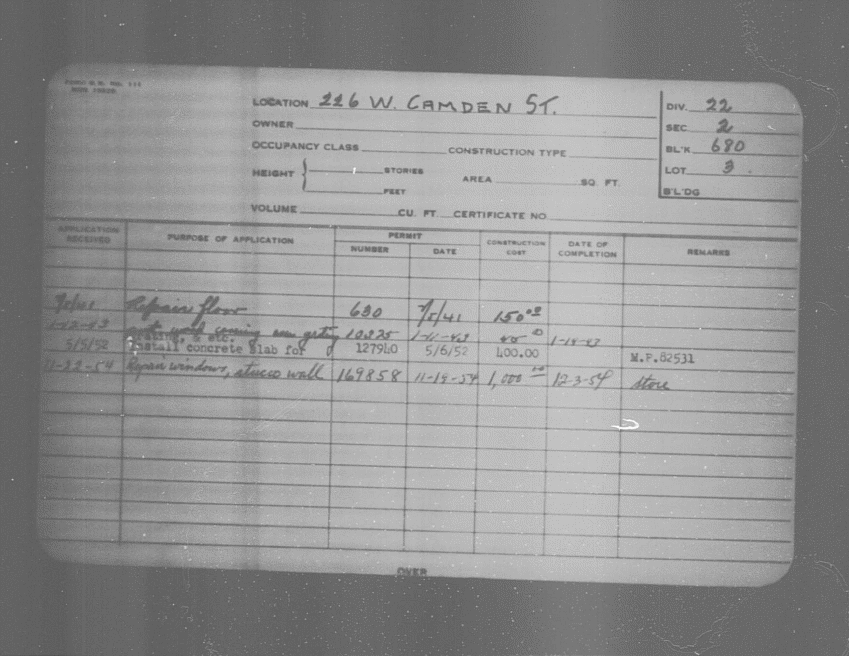 LOCATION 226 W. CAMDEN ST.
DIV. 22
OWNER
SEC 2
OCCUPANCY CLASS CONSTRUCTION TYPE
BL'K 680
HEIGHT STORIES FEET AREA SQ. FT.
LOT 3
B'L'DG
VOLUME CU. FT. CERTIFICATE NO.
APPLICATION RECEIVED PURPOSE OF APPLICATION PERMIT NUMBER DATE CONSTRUCTION COST DATE OF COMPLETION REMARKS
Repair floor 630 7/5/41 150.00
1-12-43 10225 1-11-43
grating, & etc.
5/5/52 Install concrete slab for 127940 5/6/52 400.00 M.P.82531
11-22-54 Repair windows, stucco wall 169858 11-19-54 1,000 12-3-54 store
OVER